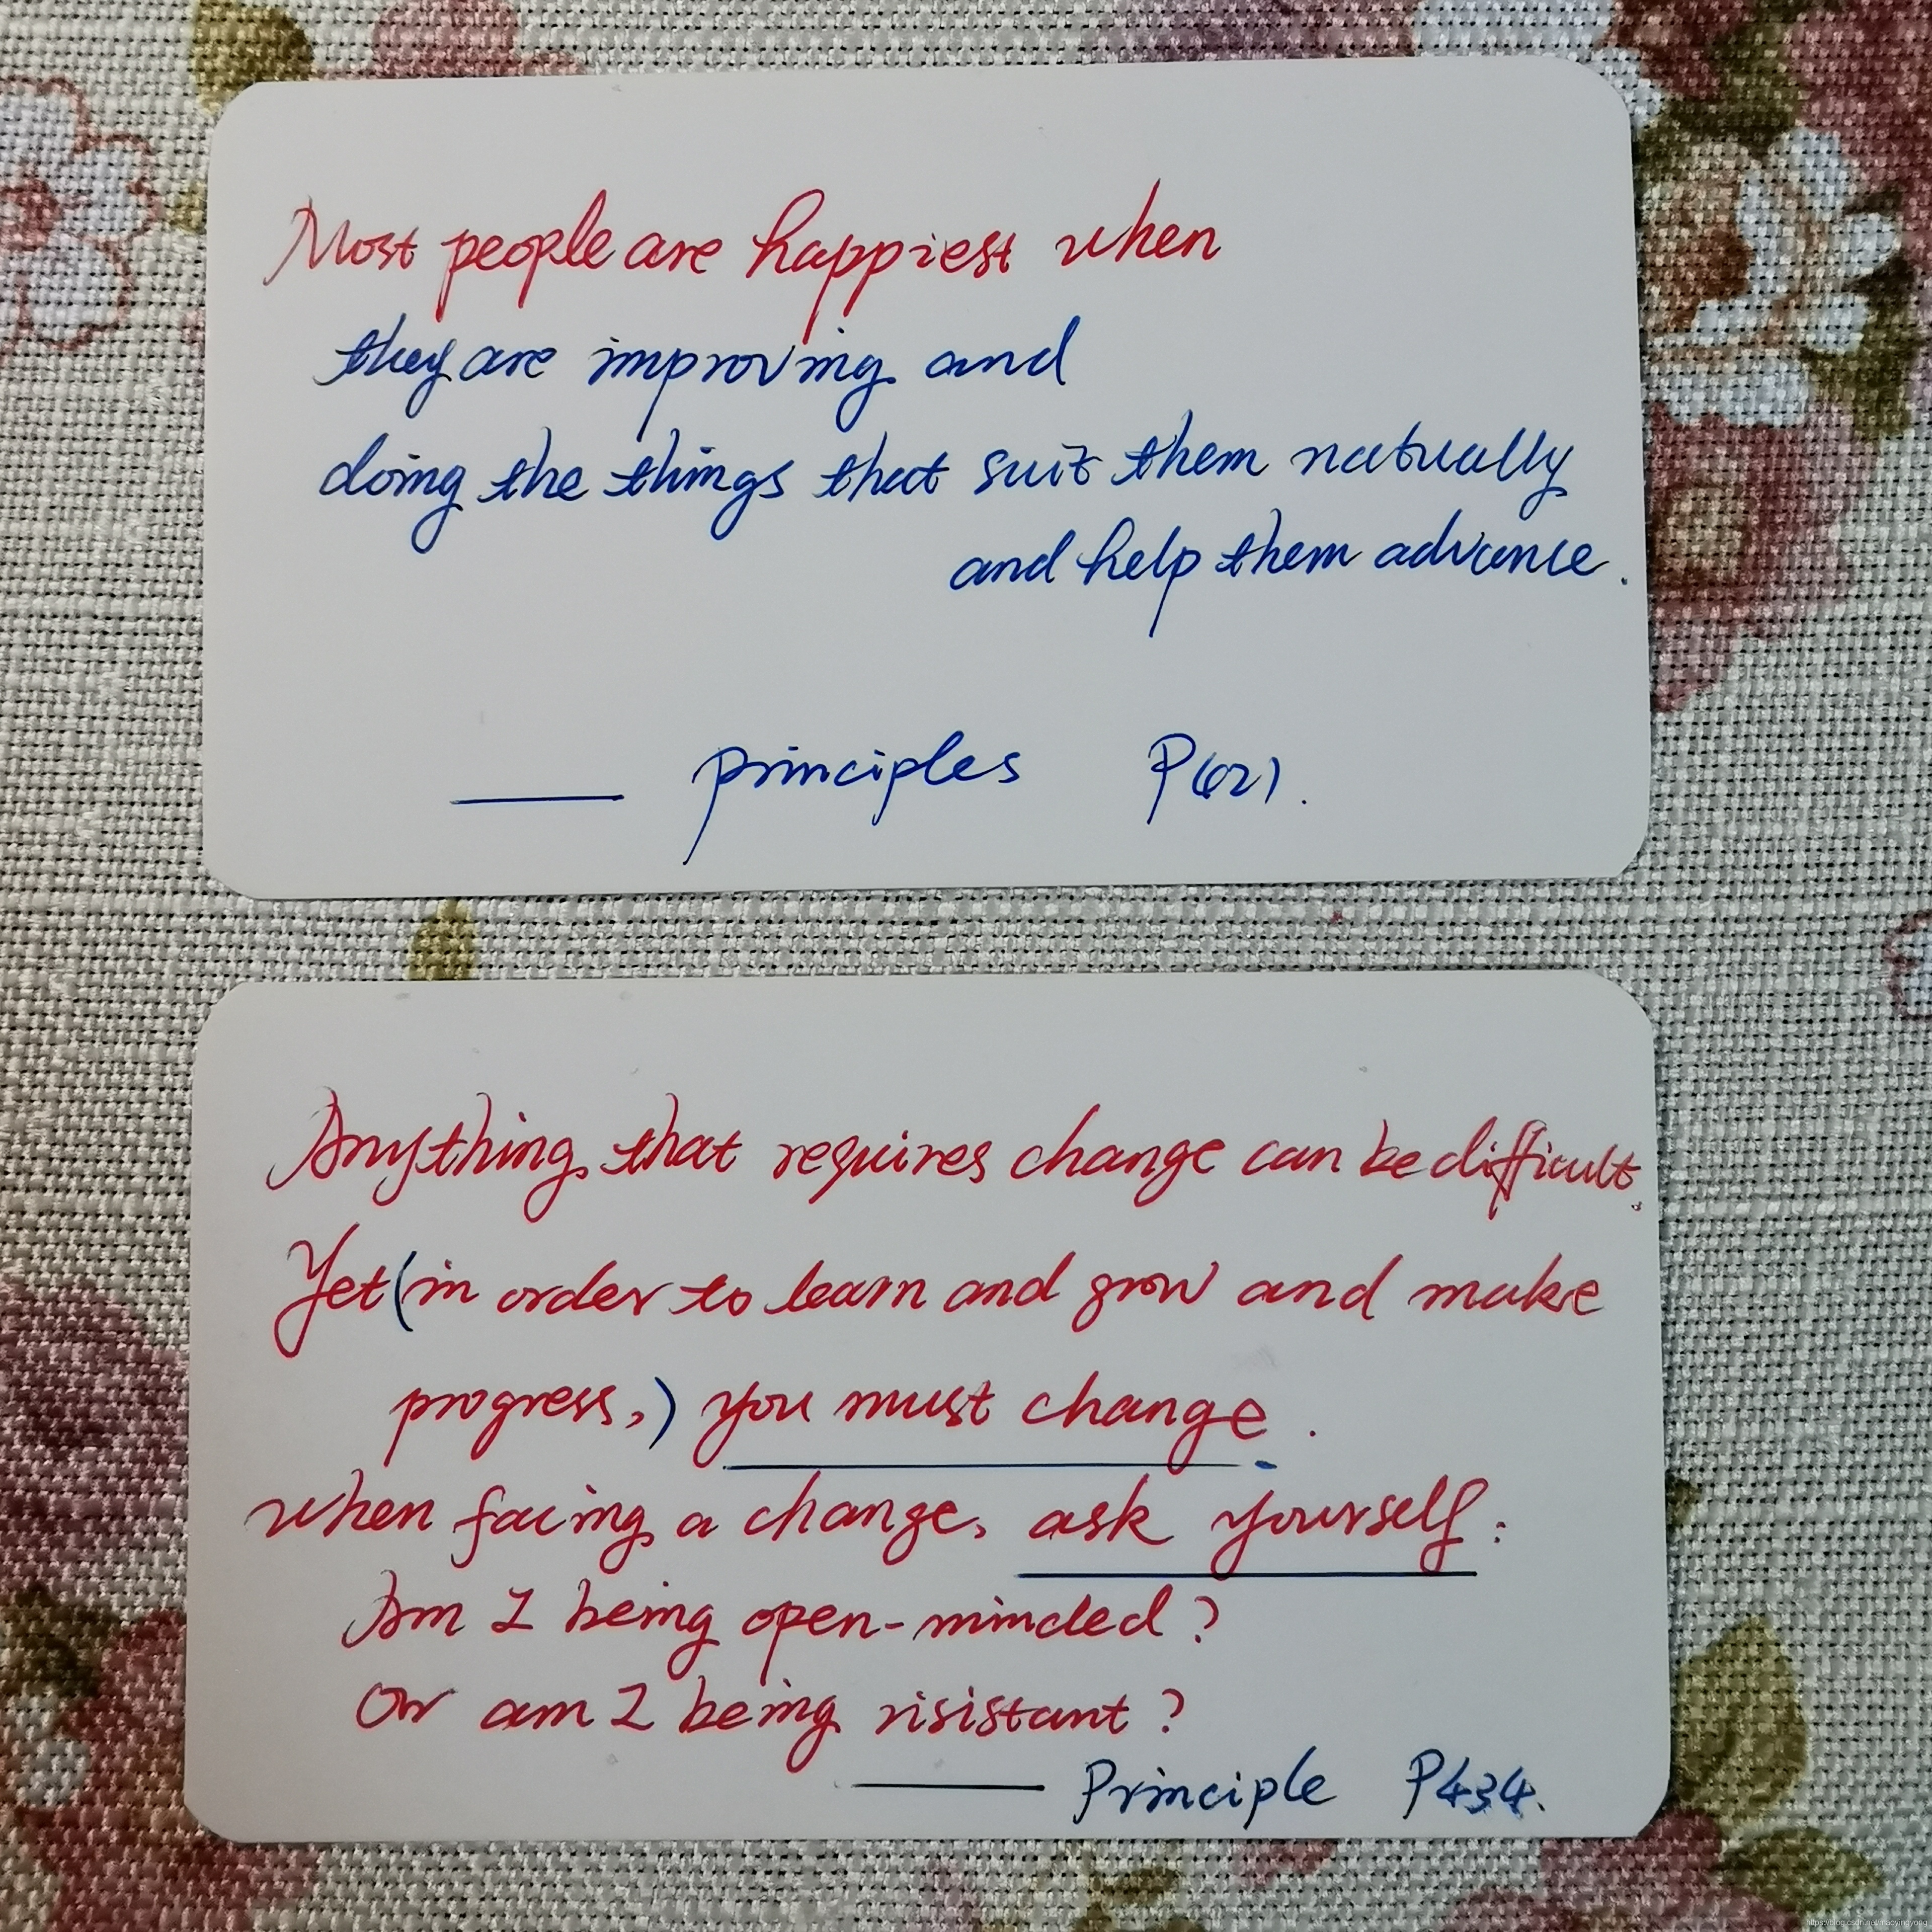 Most people are happiest when
they are improving and
doing the things that suit them natually
and help them advance.
—— principles P421.
Anything that requires change can be difficult.
Yet (in order to learn and grow and make
progress,) you must change.
when facing a change, ask yourself:
Am I being open-minded?
Or am I being risistant?
—— Principle P434.